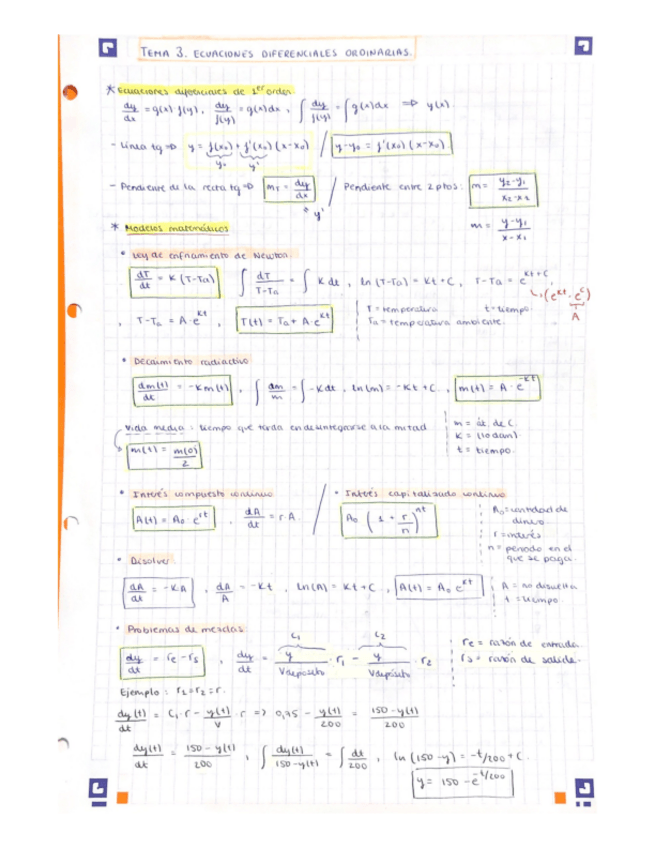 TEMA 3. ECUACIONES DIFERENCIALES ORDINARIAS.
* Ecuaciones diferenciales de 1er orden
dy/dx = g(x) f(y), dy/f(y) = g(x)dx, ∫ dy/f(y) = ∫ g(x)dx ⇒ y(x)
- Línea tg ⇒ y = f(x0) + f'(x0) (x-x0) / y-y0 = f'(x0) (x-x0)
y0 y'
- Pendiente de la recta tg ⇒ mT = dy/dx / Pendiente entre 2 ptos: m = y2-y1/x2-x1
y'
m = y-y1/x-x1
* Modelos matemáticos
• Ley de enfriamiento de Newton.
dT/dt = K (T-Ta) ∫ dT/T-Ta = ∫ K dt, ln (T-Ta) = Kt + C, T-Ta = e^Kt+C,
(e^Kt · e^C)
A
, T-Ta = A·e^Kt, T(t) = Ta + A·e^Kt
T = temperatura t = tiempo.
Ta = temperatura ambiente.
• Decaimiento radiactivo
dm(t)/dt = -Km(t), ∫ dm/m = ∫ -Kdt, ln(m) = -Kt + C, m(t) = A · e^-Kt
Vida media: tiempo que tarda en desintegrarse a la mitad
m(t) = m(0)/2
m = át. de C.
K = (10 dan)
t = tiempo.
• Interés compuesto continuo / • Interés capitalizado continuo
A(t) = A0 · e^rt, dA/dt = r·A
A0 (1 + r/n)^nt
A0 = cantidad de
dinero.
r = interés
n = periodo en el
que se paga.
• Disolver
dA/dt = -KA, dA/A = -Kt, ln(A) = Kt + C, A(t) = A0 e^Kt
A = no disuelta
t = tiempo.
• Problemas de mezclas
C1 C2
dy/dt = re - rs, dy/dt = y/Vdepósito · r1 - y/Vdepósito · r2
re = razón de entrada
rs = razón de salida.
Ejemplo: r1=r2=r.
dy(t)/dt = C1·r - y(t)/V · r ⇒ 0,75 - y(t)/200 = 150-y(t)/200
dy(t)/dt = 150-y(t)/200, ∫ dy(t)/150-y(t) = ∫ dt/200, ln (150-y) = -t/200 + C
y = 150 - e^-t/200